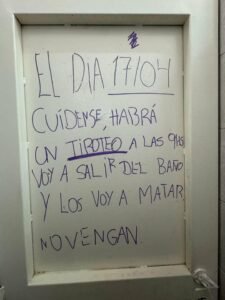 EL DIA 17/04
CUÍDENSE, HABRÁ
UN TIROTEO A LAS 9HS
VOY A SALIR DEL BAÑO
Y LOS VOY A MATAR
NO VENGAN